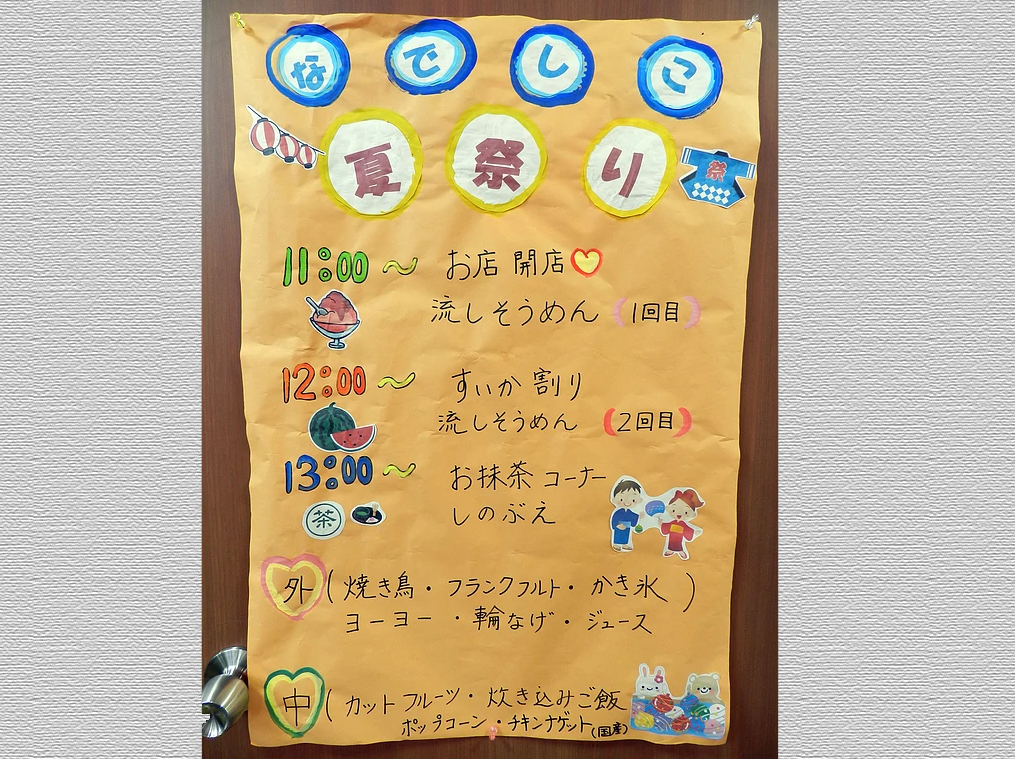 なでしこ
夏祭り
祭
11:00～ お店 開店♡
流しそうめん (1回目)
12:00～ すいか割り
流しそうめん (2回目)
13:00～ お抹茶コーナー
茶
しのぶえ
外 (焼き鳥・フランクフルト・かき氷)
ヨーヨー・輪なげ・ジュース
中 (カットフルーツ・炊き込みご飯
ポップコーン・チキンナゲット(国産)